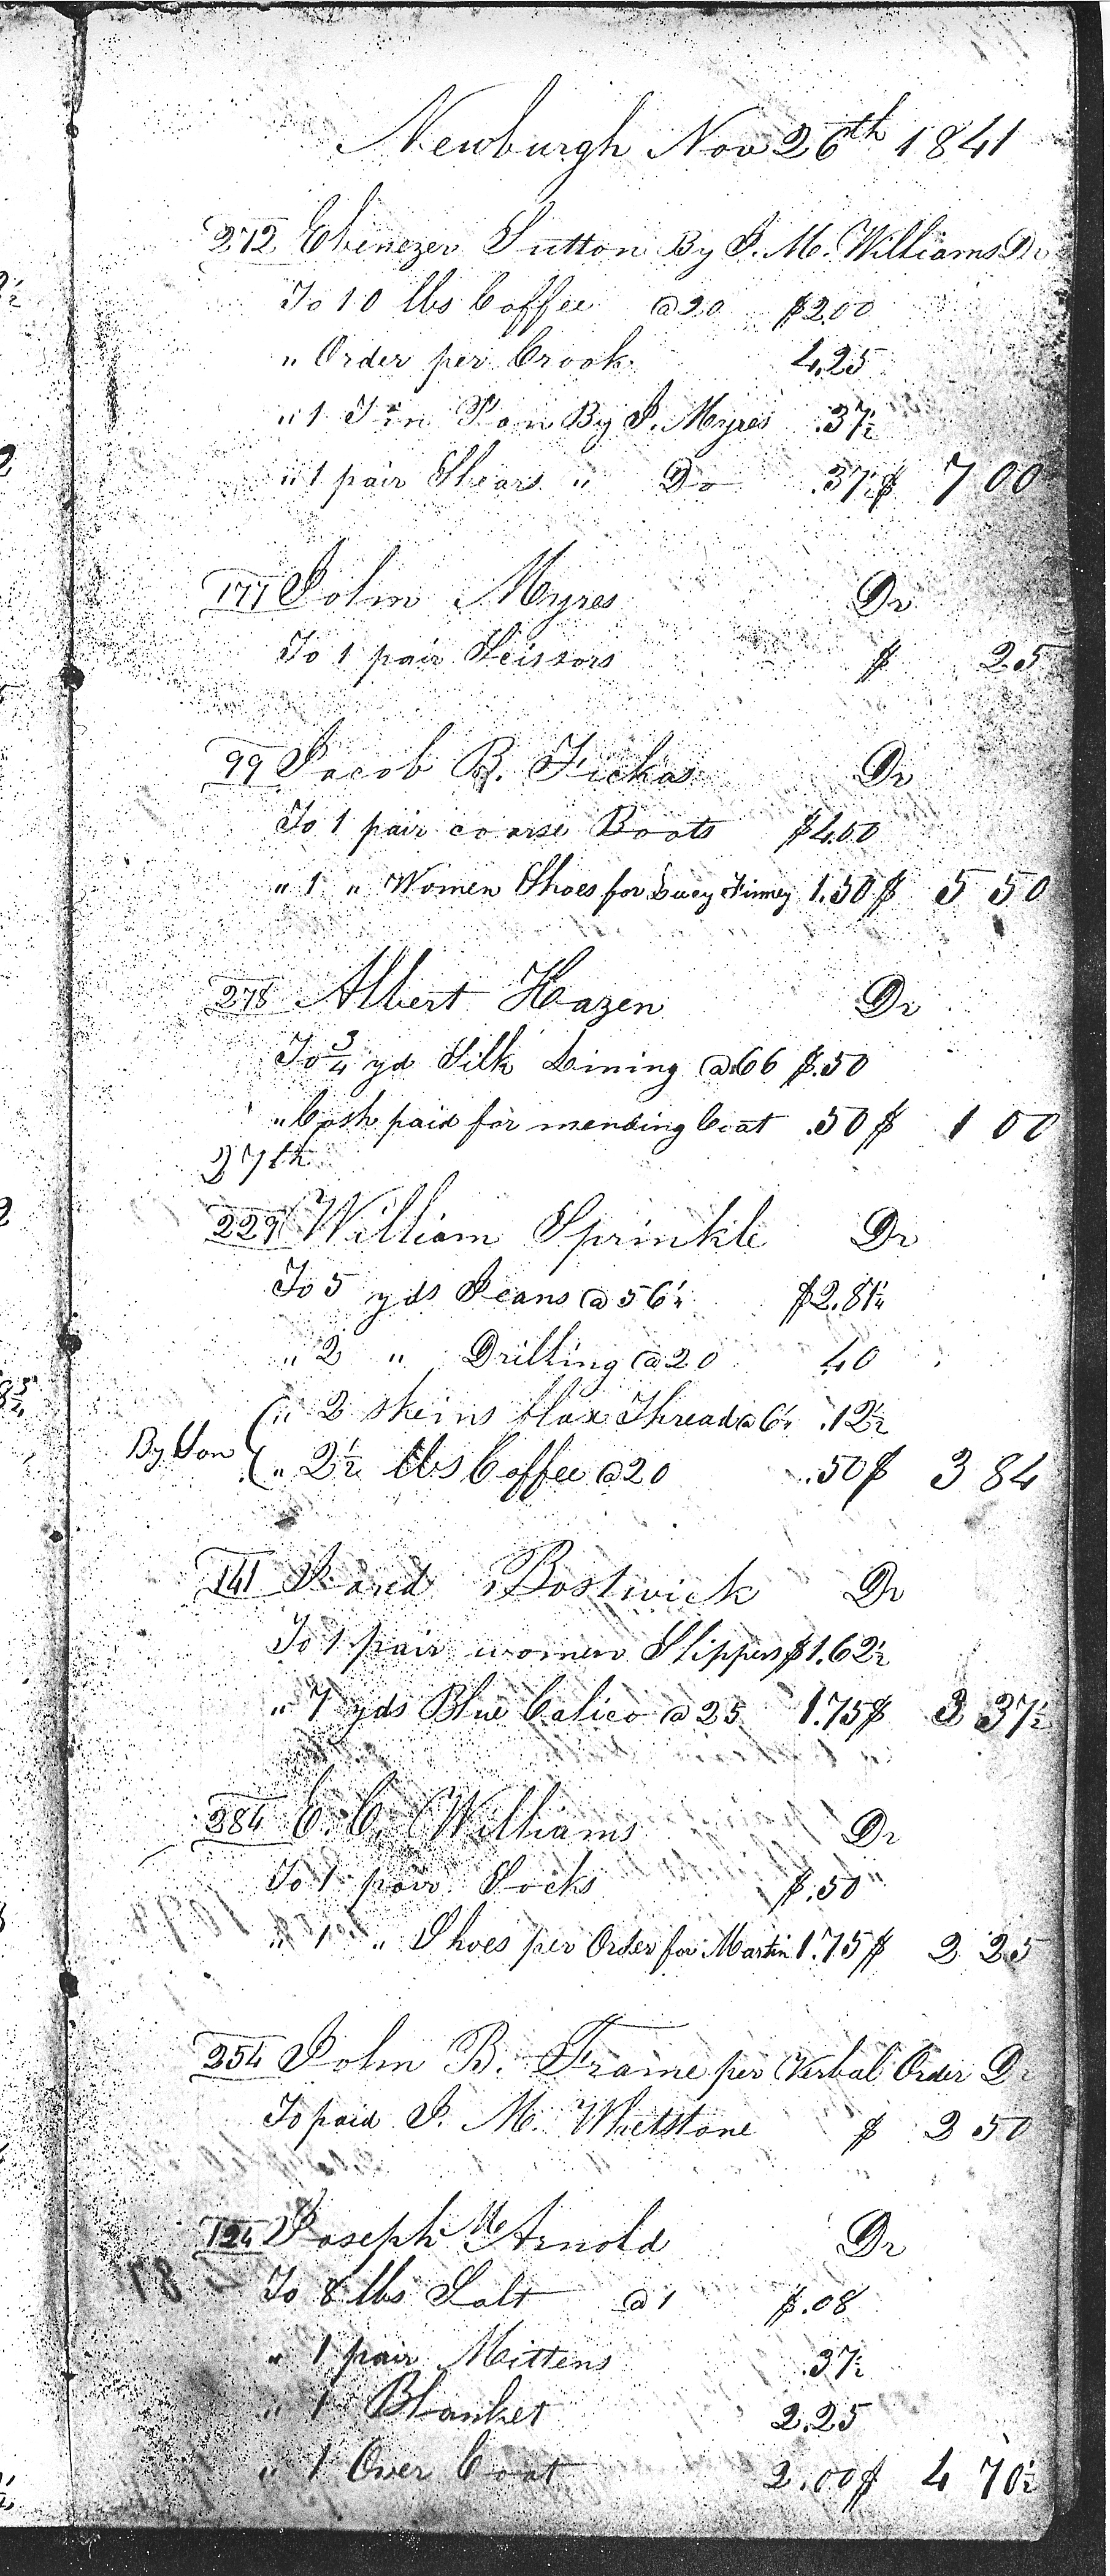 Newburgh Nov 26th 1841
272 Ebenezer Sutton By J. M. Williams Dr
To 10 lbs Coffee @ 20 $2.00
" Order per Crook 4.25
" 1 Tin Pan By J. Myres .37½
" 1 pair Shears " Do .37½ $ 7 00
177 John Myres Dr
To 1 pair Scissors $ 25
99 Jacob B. Fickas Dr
To 1 pair coarse Boots $4.00
" 1 " Women Shoes for Lucy Finney 1.50 $ 5 50
278 Albert Hazen Dr
To ¾ yd Silk Lining @ 66 $.50
" Cash paid for mending Coat .50 $ 1 00
27th
229 William Sprinkle Dr
To 5 yds Jeans @ 56¼ $2.81¼
" 2 " Drilling @ 20 40
" 2 skeins flax Thread @ 6¼ .12½
By Son " 2½ lbs Coffee @ 20 .50 $ 3 84
141 Jared Bostwick Dr
To 1 pair women Slippers $1.62½
" 7 yds Blue Calico @ 25 1.75 $ 3 37½
284 C. C. Williams Dr
To 1 pair Socks $.50
" 1 " Shoes per Order for Martin 1.75 $ 2 25
254 John B. Frame per Verbal Order Dr
To paid J. M. Whetstone $ 2 50
124 Joseph McArnold Dr
To 8 lbs Salt @ 1 $.08
" 1 pair Mittens .37½
" 1 Blanket 2.25
" 1 Over Coat 2.00 $ 4 70½